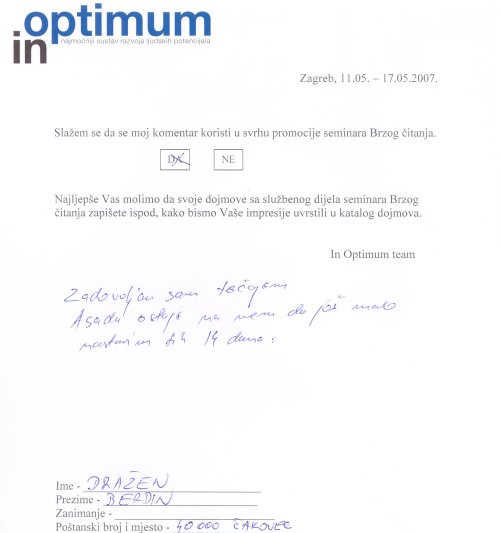 in optimum
najmoćniji sustav razvoja ljudskih potencijala
Zagreb, 11.05. – 17.05.2007.
Slažem se da se moj komentar koristi u svrhu promocije seminara Brzog čitanja.
DA NE
Najljepše Vas molimo da svoje dojmove sa službenog dijela seminara Brzog
čitanja zapišete ispod, kako bismo Vaše impresije uvrstili u katalog dojmova.
In Optimum team
Zadovoljan sam tečajem
A sada ostaje na meni da još malo
nastavim tih 14 dana.
Ime - DRAŽEN
Prezime - BERDIN
Zanimanje -
Poštanski broj i mjesto - 40 000 ČAKOVEC